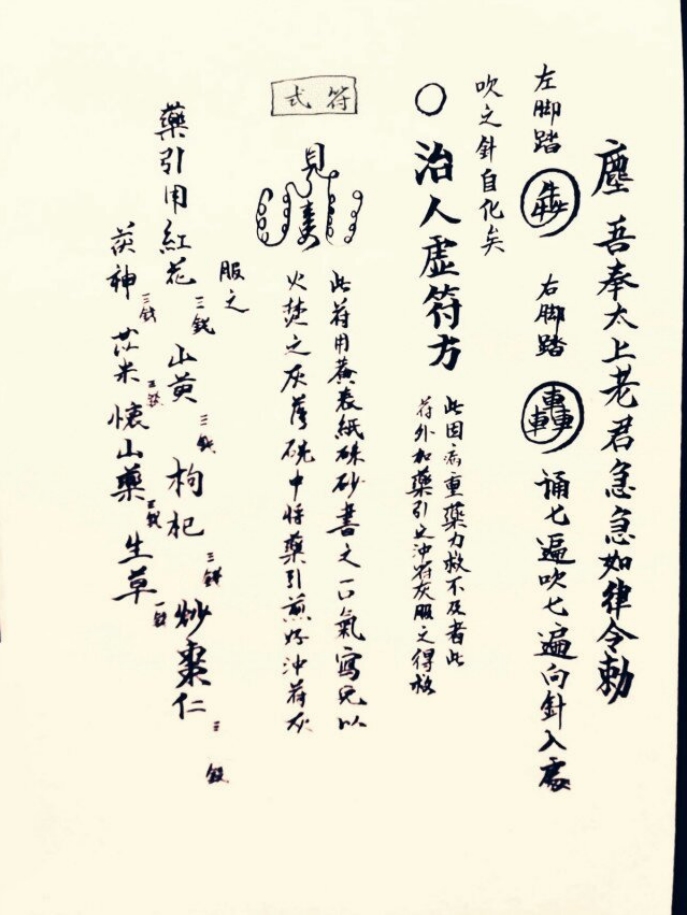 塵吾奉太上老君急急如律令勅
左脚踏 犇 右脚踏 轟 誦七遍吹七遍向針入處
吹之針自化矣
〇治人虛符方
此因病重藥力救不及者此
符外加藥引之沖符灰服之得移
符式
見
此符用黃表紙硃砂書之一口氣寫完以
火焚之灰落碗中將藥引煎好沖符灰
服之
藥引用紅花三錢山黃三錢枸杞三錢炒棗仁三錢
茯神三錢苡米三錢懷山藥三錢生草一錢